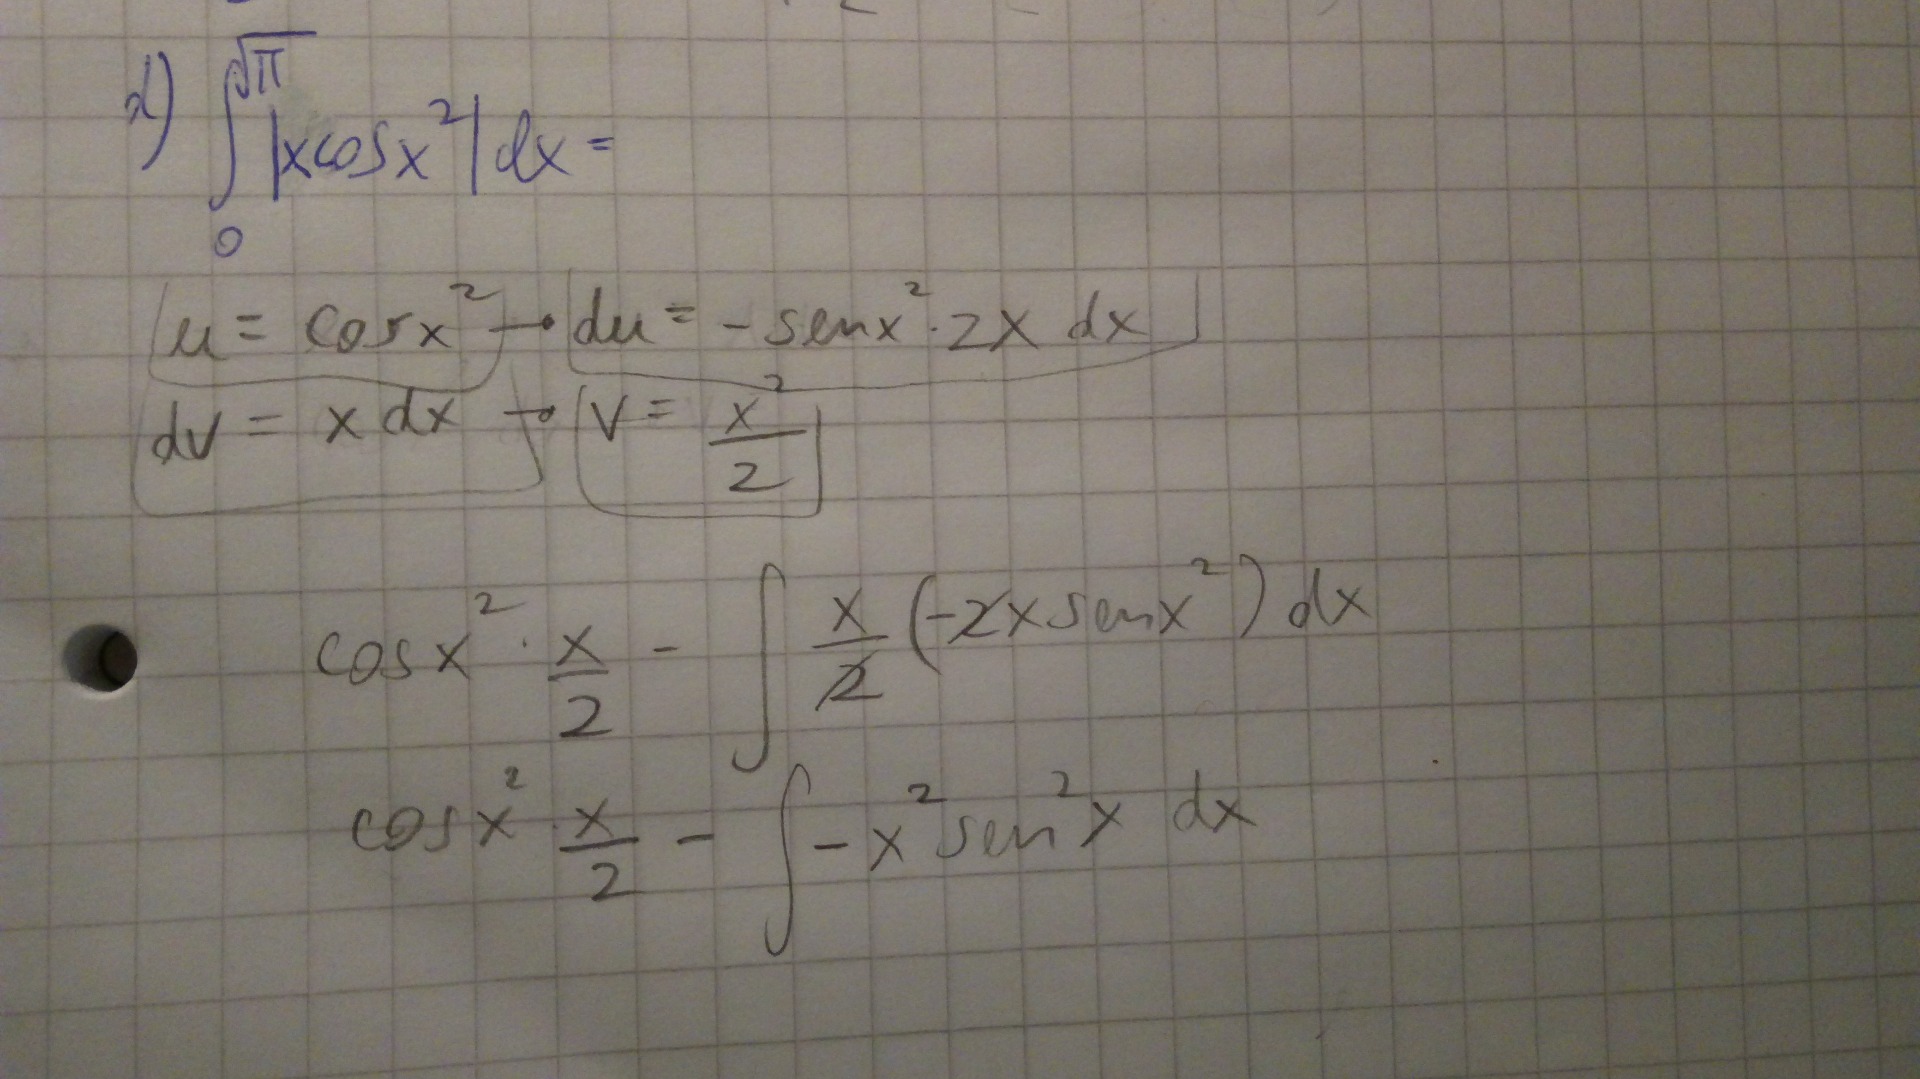 d) ∫₀^√π |x cos x²| dx =
u = cos x² → du = - sen x² · 2x dx
dv = x dx → v = x²/2
cos x² · x/2 - ∫ x/2 (-2x sen x²) dx
cos x² · x/2 - ∫ - x² sen² x dx